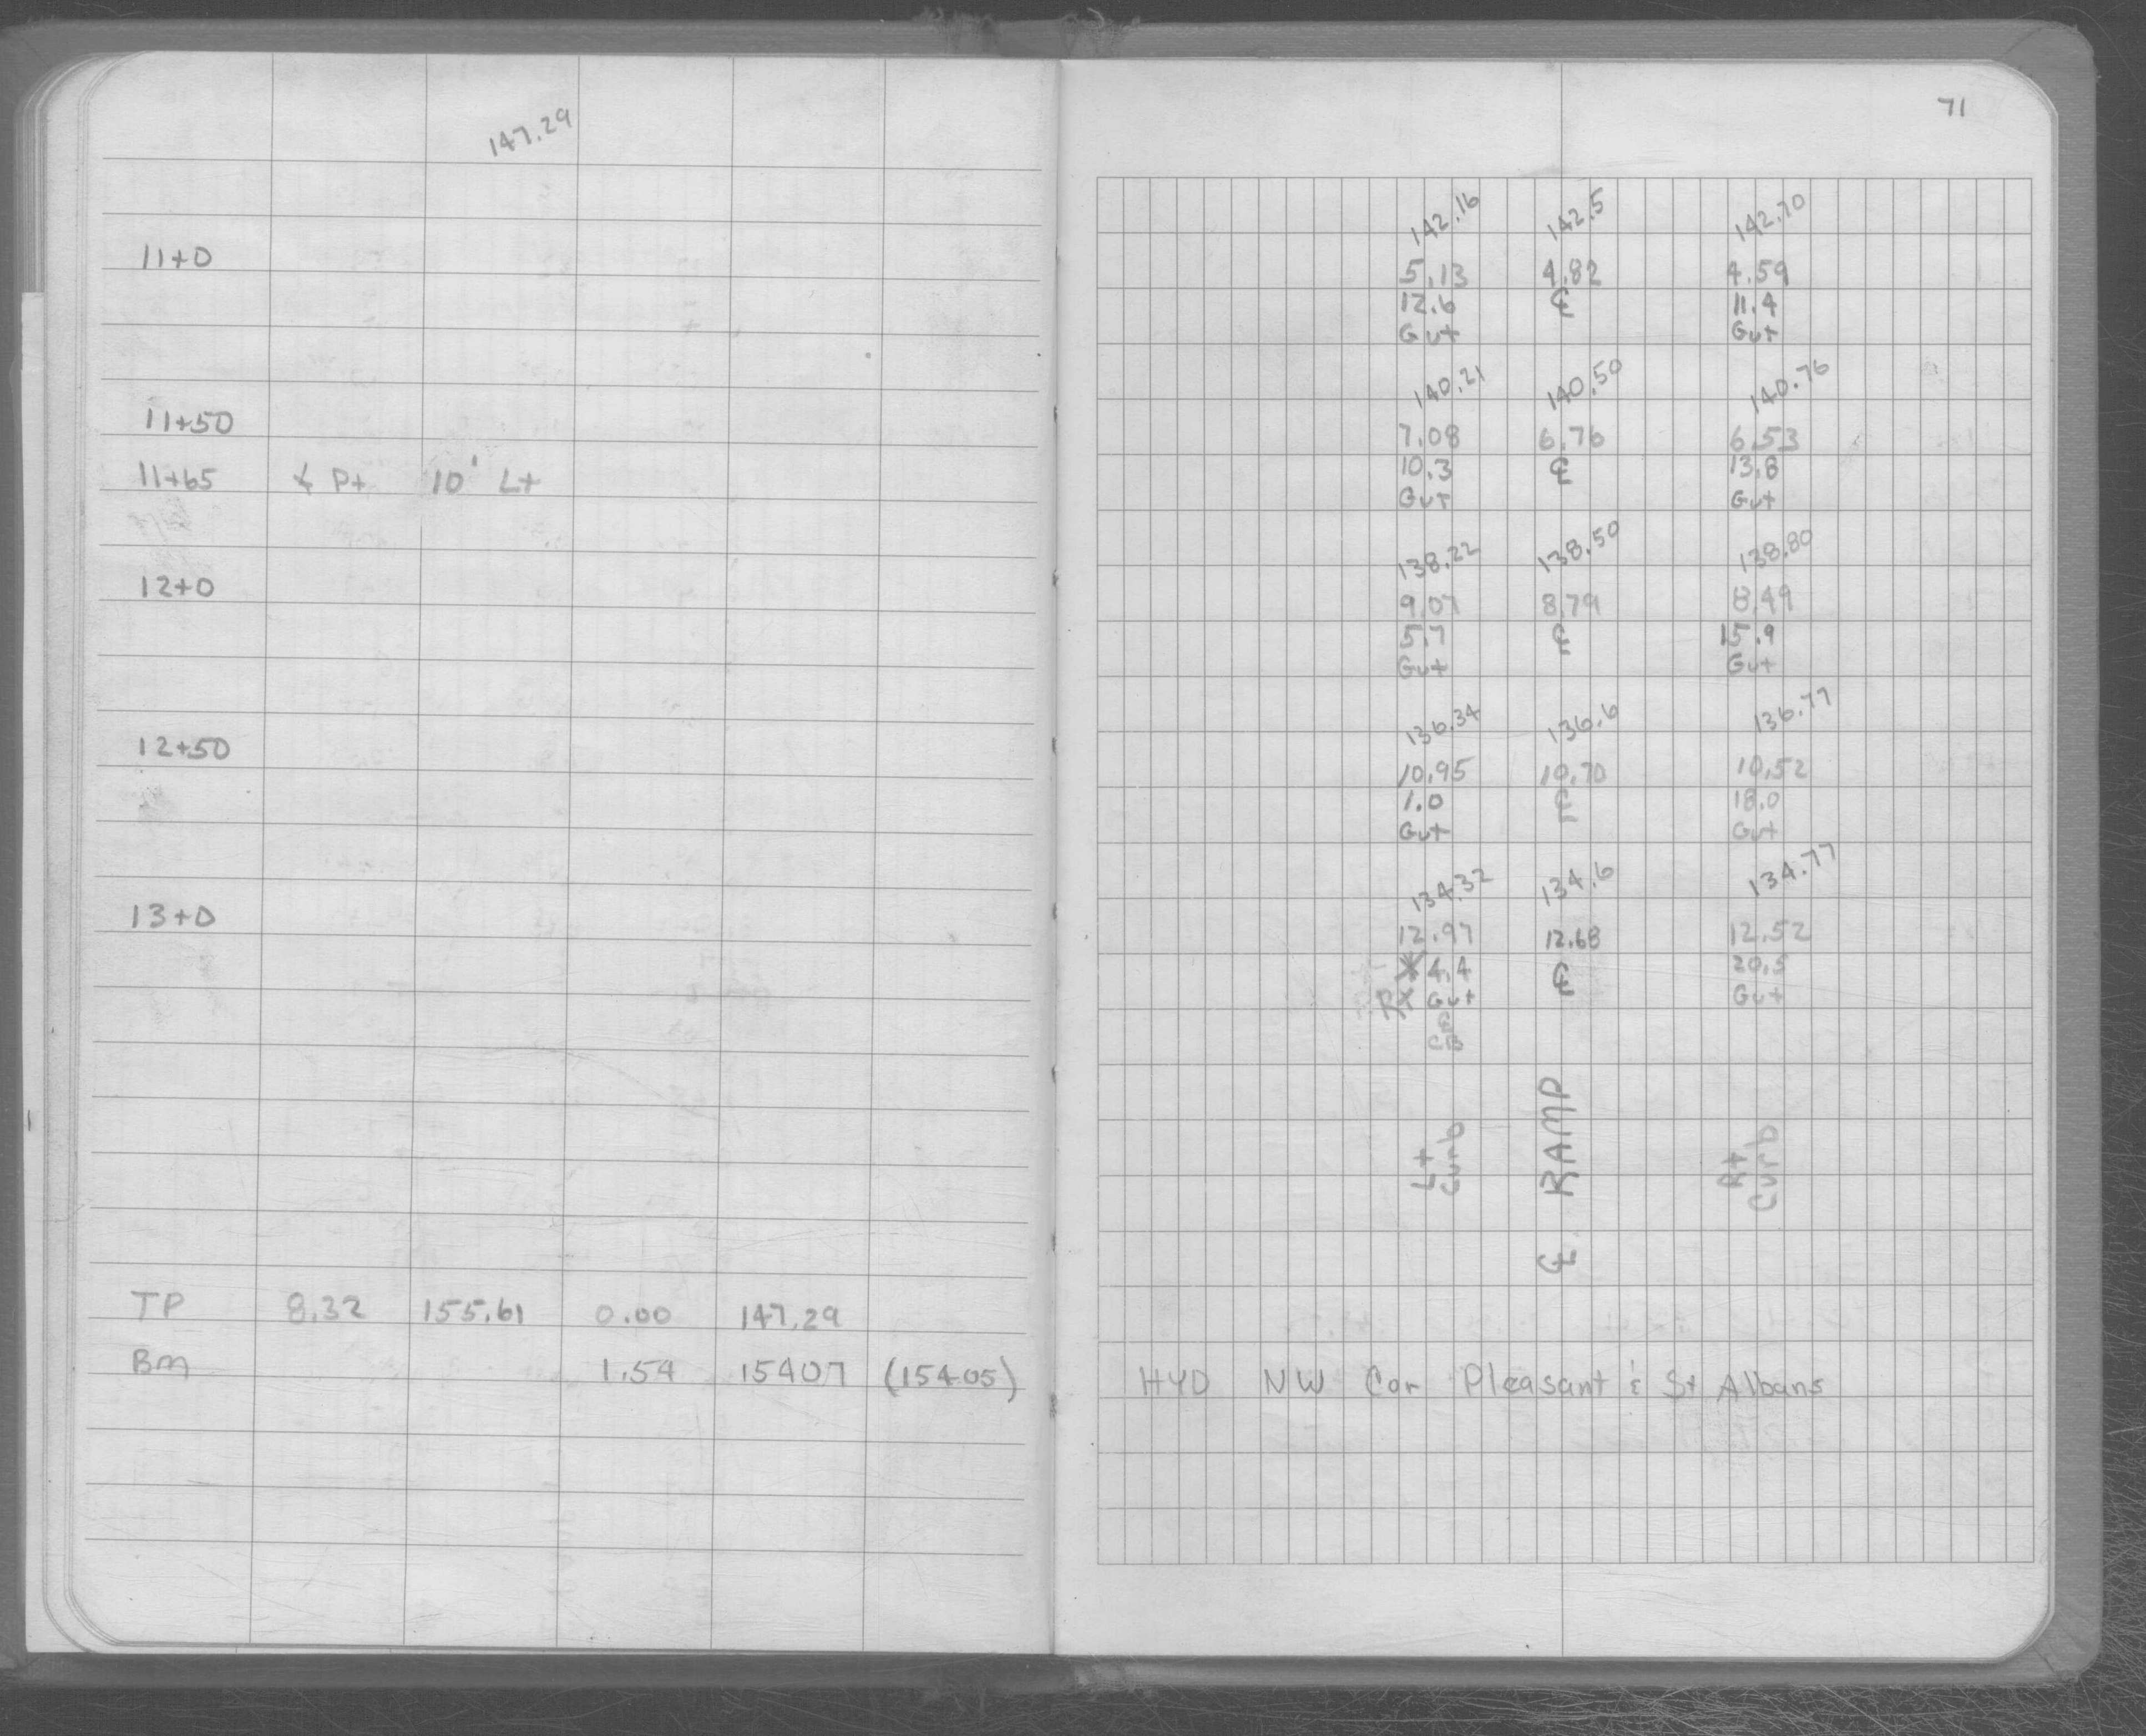 147.29
11+0
11+50
11+65 ∡ Pt 10' Lt
12+0
12+50
13+0
TP 8.32 155.61 0.00 147.29
BM 1.54 15407 (154.05)
71
142.16 142.5 142.70
5.13 4.82 4.59
12.6 ℄ 11.4
Gut Gut
140.21 140.50 140.76
7.08 6.76 6.53
10.3 ℄ 13.8
Gut Gut
138.22 138.50 138.80
9.07 8.79 8.49
5.7 ℄ 15.9
Gut Gut
136.34 136.6 136.77
10.95 10.70 10.52
1.0 ℄ 18.0
Gut Gut
134.32 134.6 134.77
12.97 12.68 12.52
4.4 ℄ 20.5
Rt Gut Gut
&
CB
Lt Curb
℄ RAMP
Rt Curb
HYD NW Cor Pleasant & St Albans